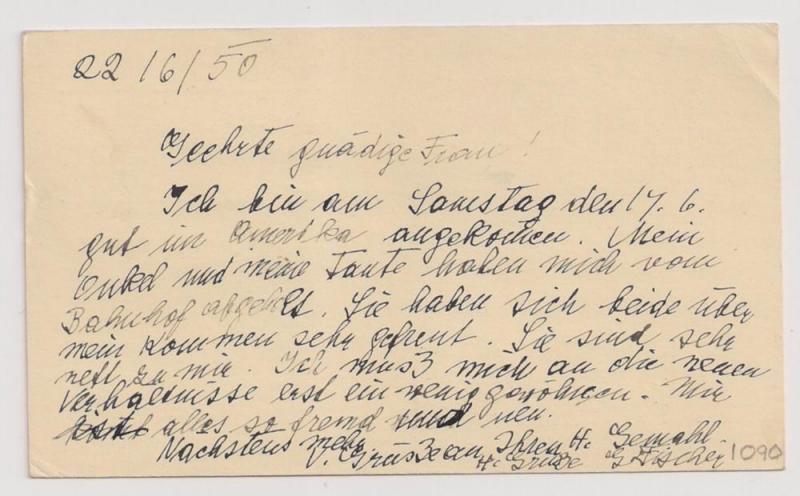 22/6/50
Geehrte gnädige Frau!
Ich bin am Samstag den 17.6.
gut in Amerika angekommen. Mein
Onkel und meine Tante haben mich vom
Bahnhof abgeholt. Sie haben sich beide über
mein Kommen sehr gefreut. Sie sind sehr
nett zu mir. Ich muß mich an die neuen
Verhältnisse erst ein wenig gewöhnen. Mir
ist alles so fremd und neu.
Nächstens mehr
V. Grüße an Ihren H. Gemahl.
H. Grüße G. Fischer
1090